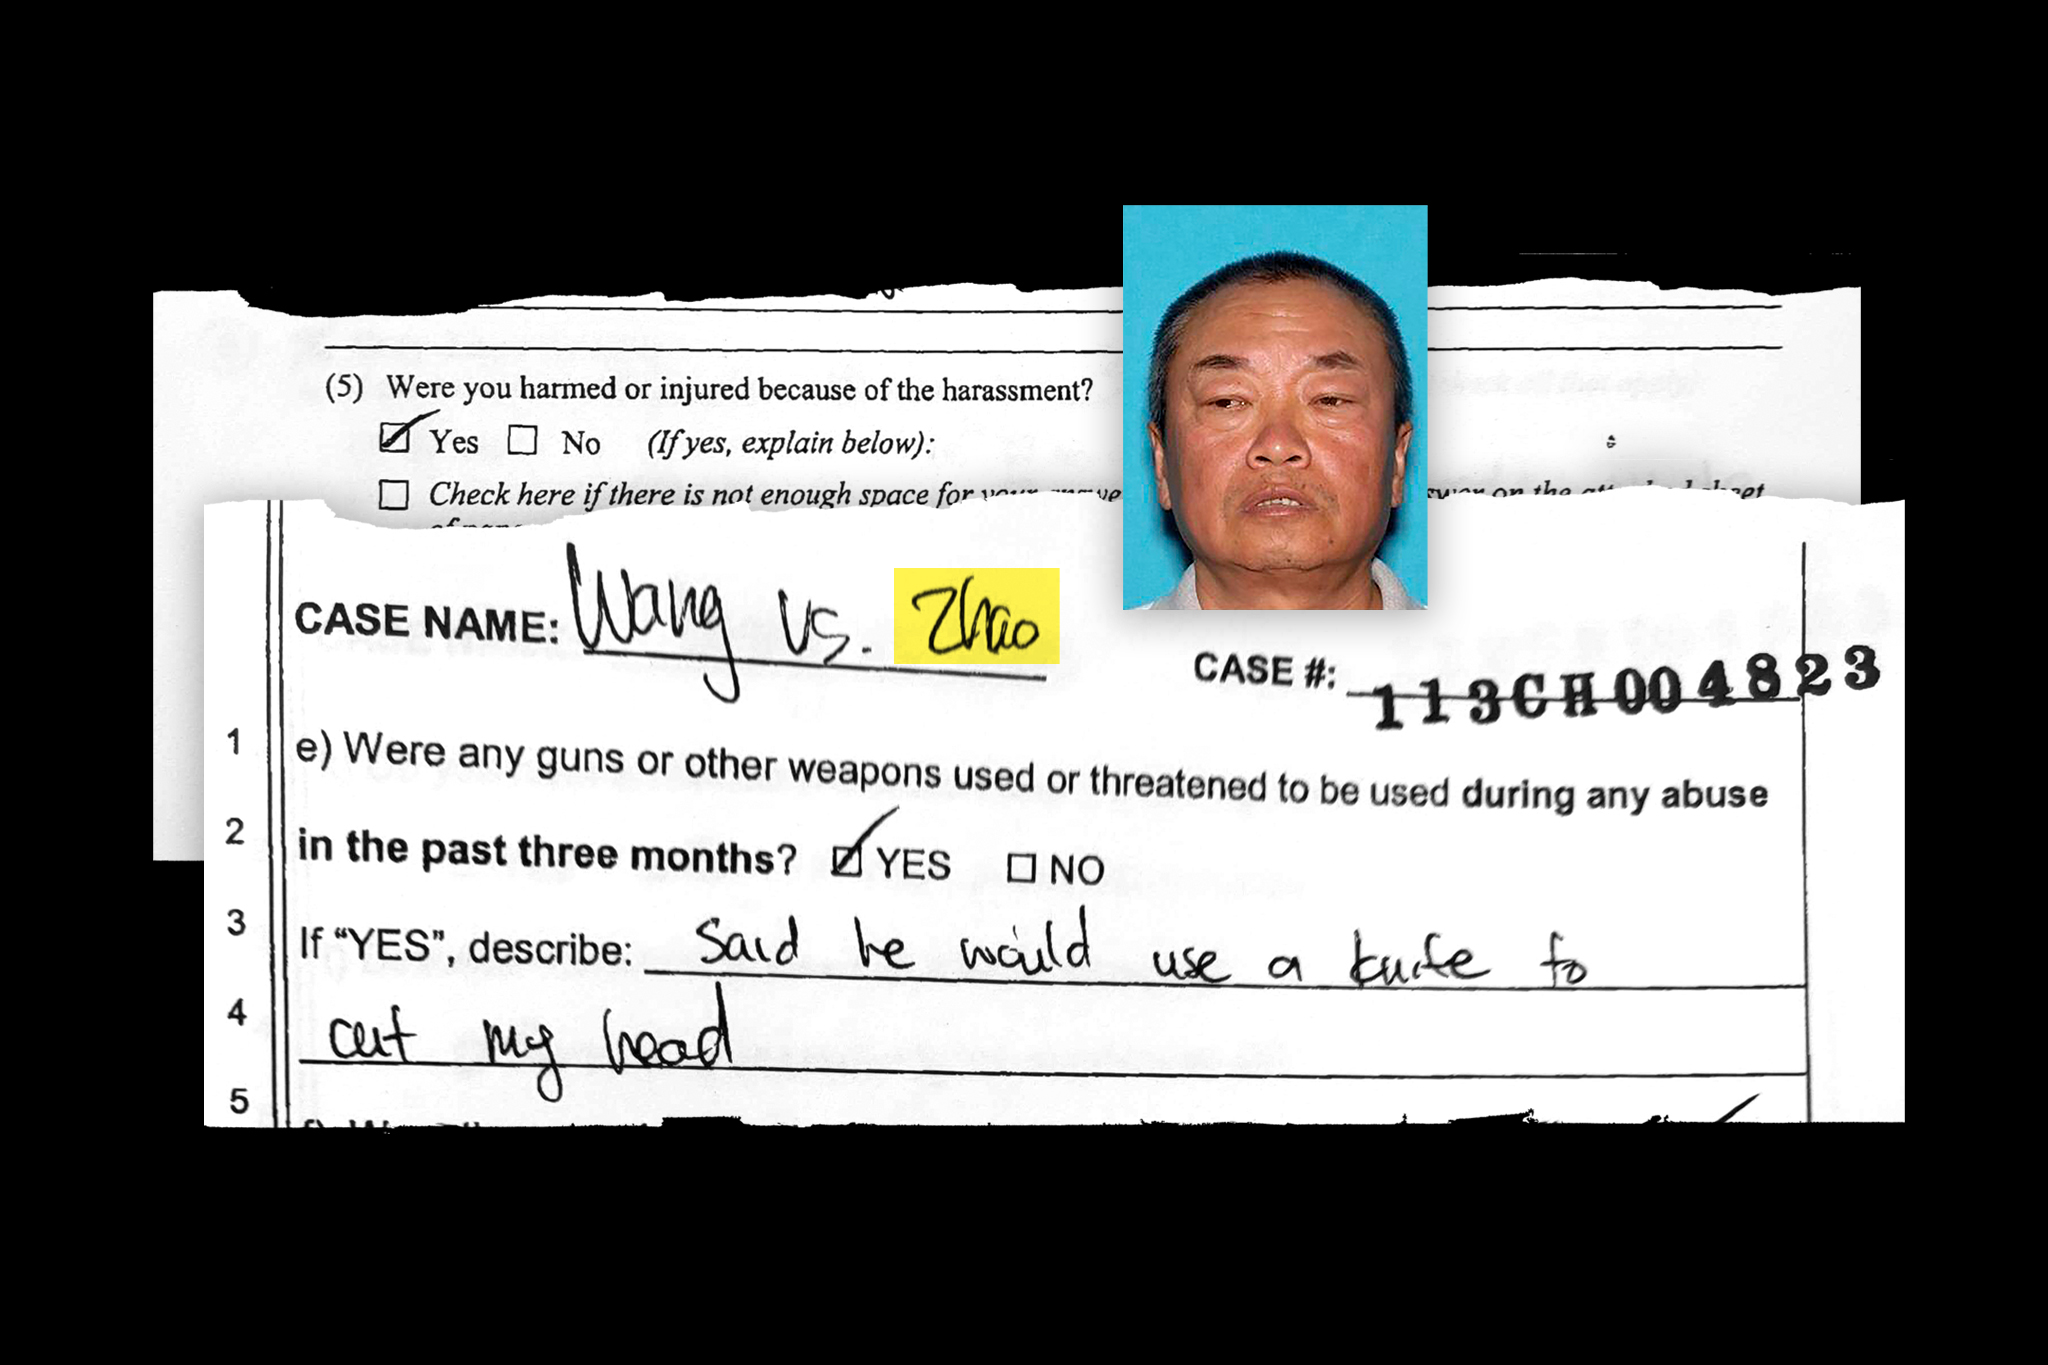 (5) Were you harmed or injured because of the harassment?
Yes No (If yes, explain below):
Check here if there is not enough space for your answer on the attached sheet
CASE NAME: Wang vs. Zhao
CASE #: 113CH004823
1 e) Were any guns or other weapons used or threatened to be used during any abuse
2 in the past three months? YES NO
3 If “YES”, describe: Said he would use a knife to
4 cut my head
5